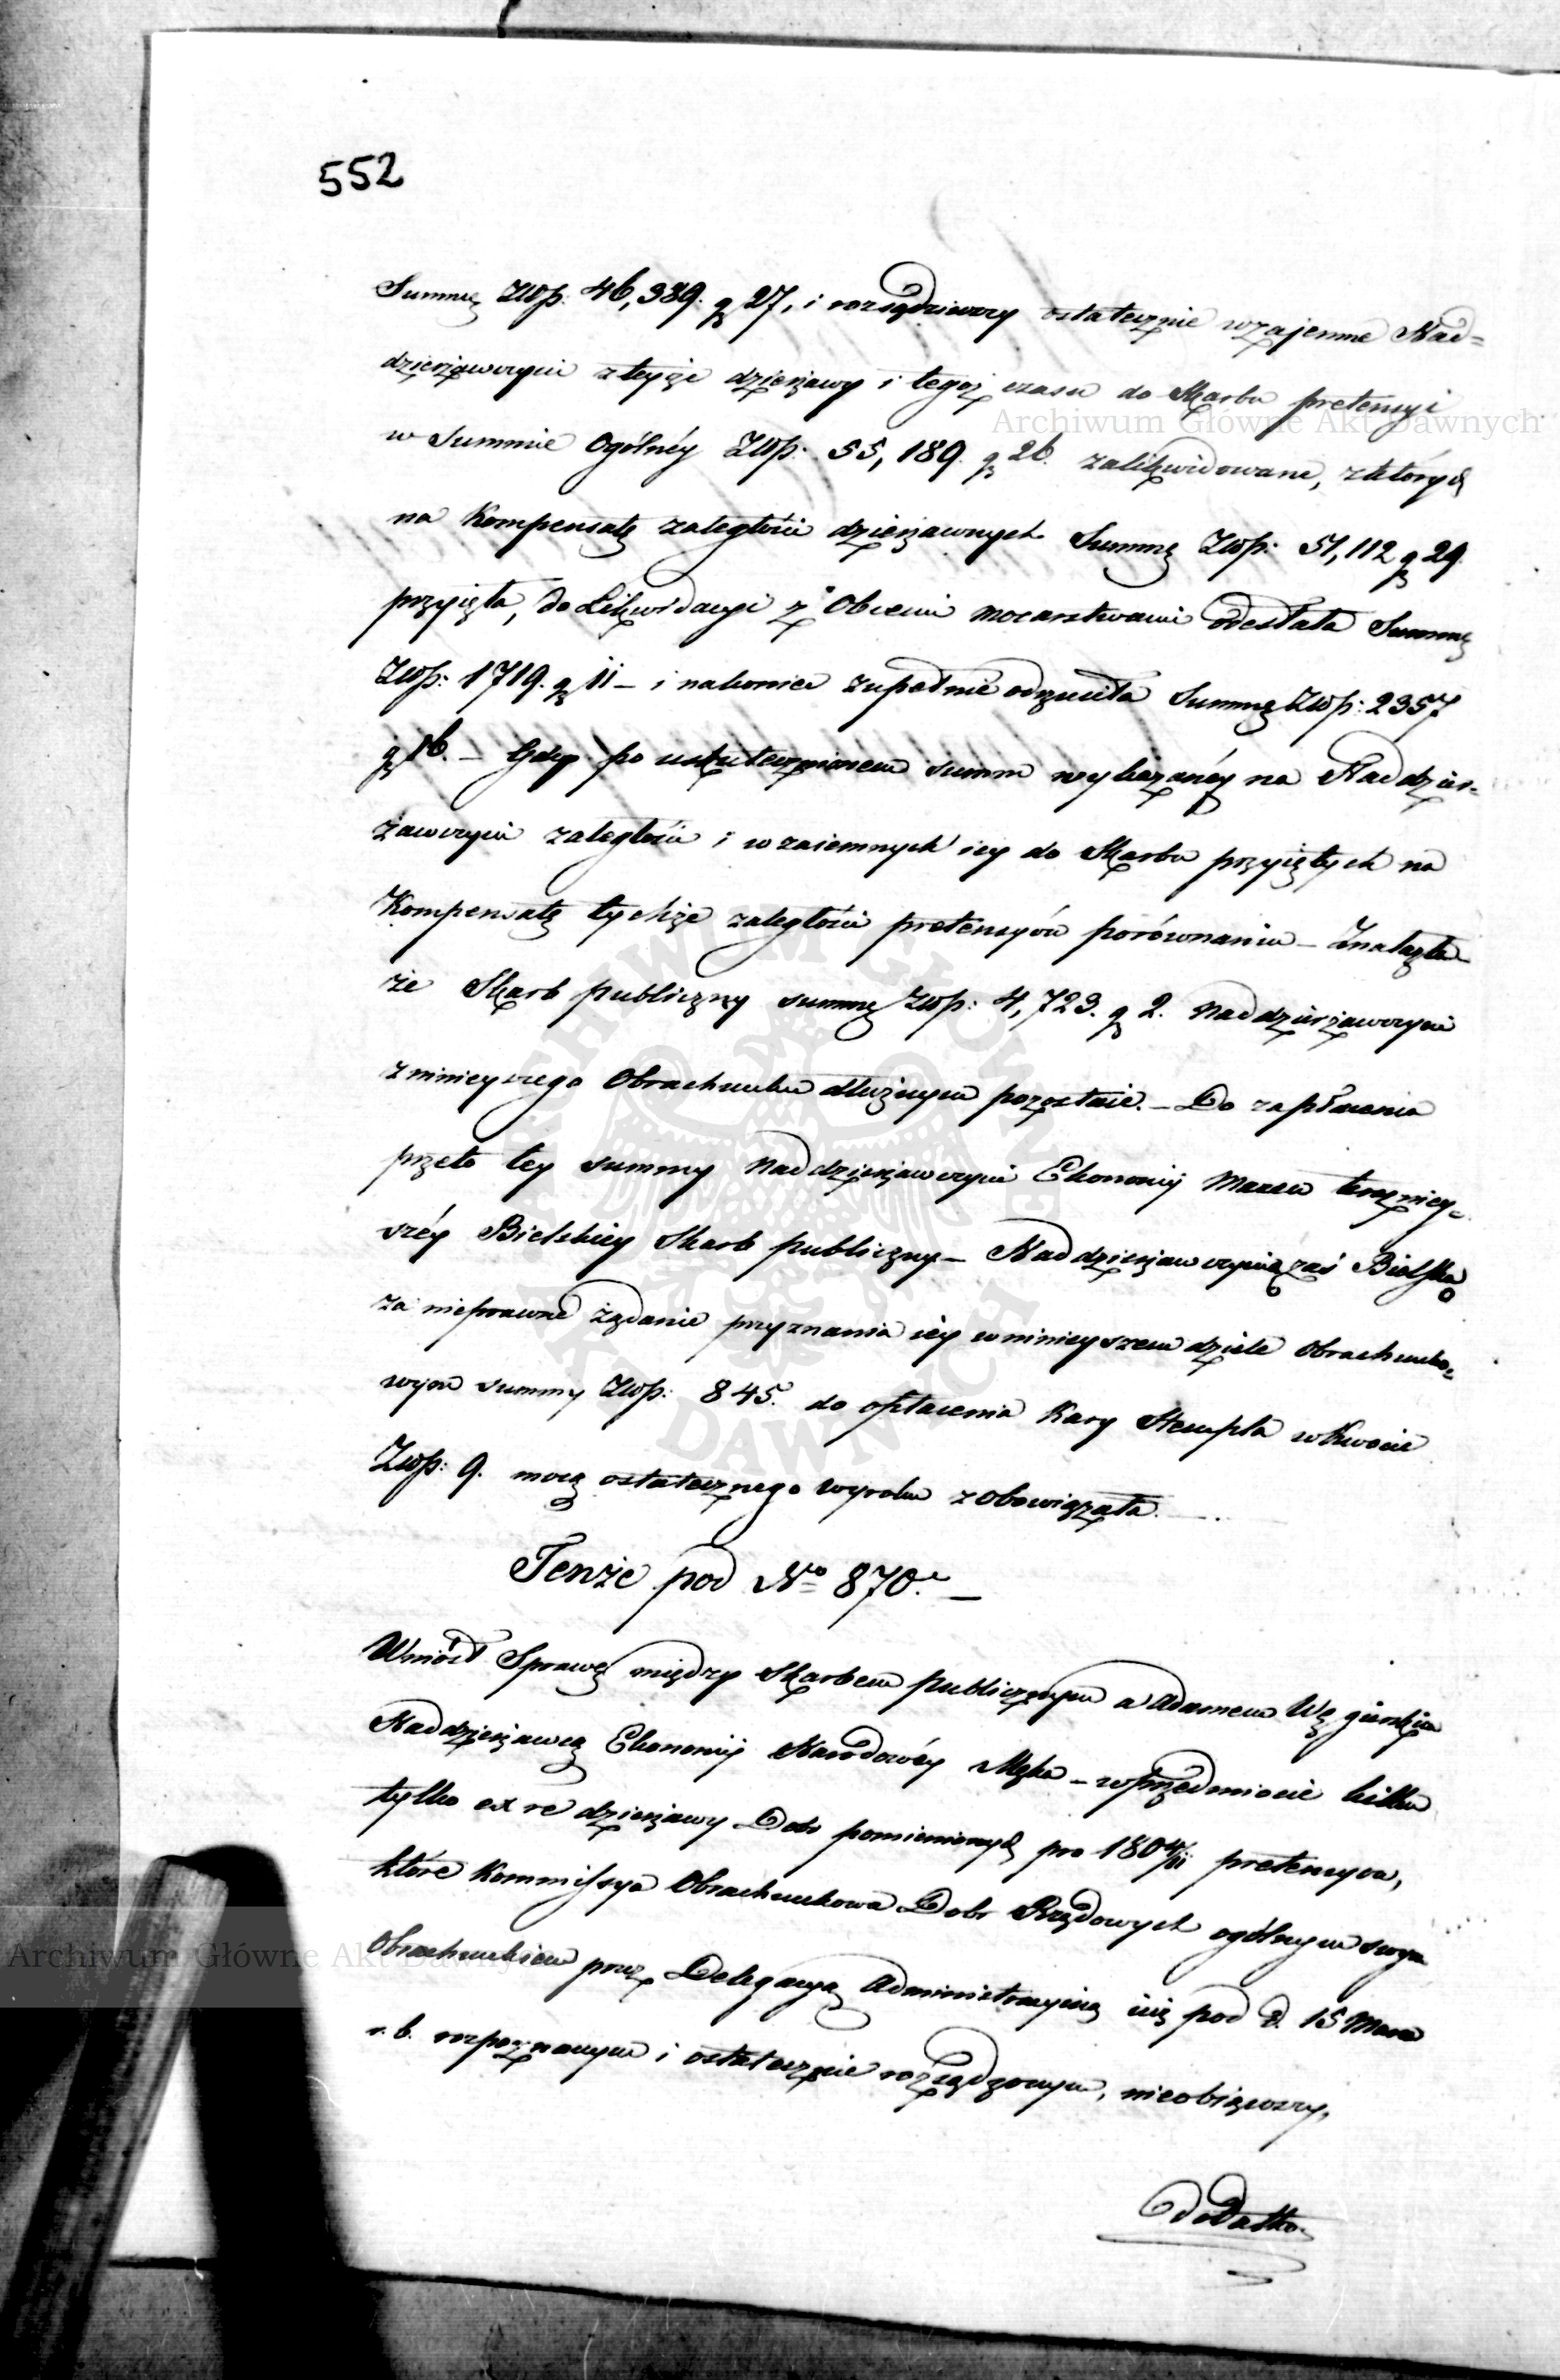 552
Summę Złłp: 46,389. gr 27, i rozsądziwszy ostatecznie wzajemne Nad=
dzierżawczyni z teyże dzierżawy i tegoż czasu do Skarbu pretensyi
w Summie Ogólnéy Złłp: 55,189. gr 26. zalikwidowane, z których
na Kompensatę zaległości dzierżawnych Summę Złłp: 51,112 gr 29.
przyięła, do Likwidacyi z Obcemi mocarstwami odesłała Summę
Złłp: 1719. gr 11 – i nakoniec zupełnie odrzuciła Summę Złłp: 2357
gr 16. – Gdy po uskutecznionem summ wykazanéy na Naddzier=
żawczyni zaległości i wzaiemnych iey do Skarbu przyiętych na
Kompensatę tychże zaległości pretensyów porównaniu – Znalazła
że Skarb publiczny summę Złłp: 4,723. gr 2. Naddzierżawczyni
z ninieyszego Obrachunku dłużnym pozostaie. – Do zapłacenia
przeto tey summy Naddzierżawczyni Ekonomij teraźniey=
széy Bielskiey Skarb publiczny – Naddzierżawczynią zaś Bielską
za nieprawne żądanie przyznania iéy w ninieyszem dziele Obrachunko=
wym summy Złłp: 845. do opłacenia Kary Stempla w kwocie
Złłp: 9. mocą ostatecznego wyroku zobowiązała. – .
Tenże pod No 870. –
Wniósł Sprawę między Skarbem publicznym a Adamem Węgierskim
Naddzierżawcą Ekonomij Narodowéy Męka – w przedmiocie kilku
tylko ex re dzierżawy Dóbr pomienionych pro 180 pretensyów,
które Kommissya Obrachunkowa Dóbr Rządowych ogólnym swym
Obrachunkiem przez Delegacyą Administracyiną iuż pod d. 15 Marca
r. b. rozpoznanym i ostatecznie rozsądzonym, nieobiąwszy,
dodatko=
Archiwum Główne Akt Dawnych
Archiwum Główne Akt Dawnych
ARCHIWUM GŁÓWNE AKT DAWNYCH